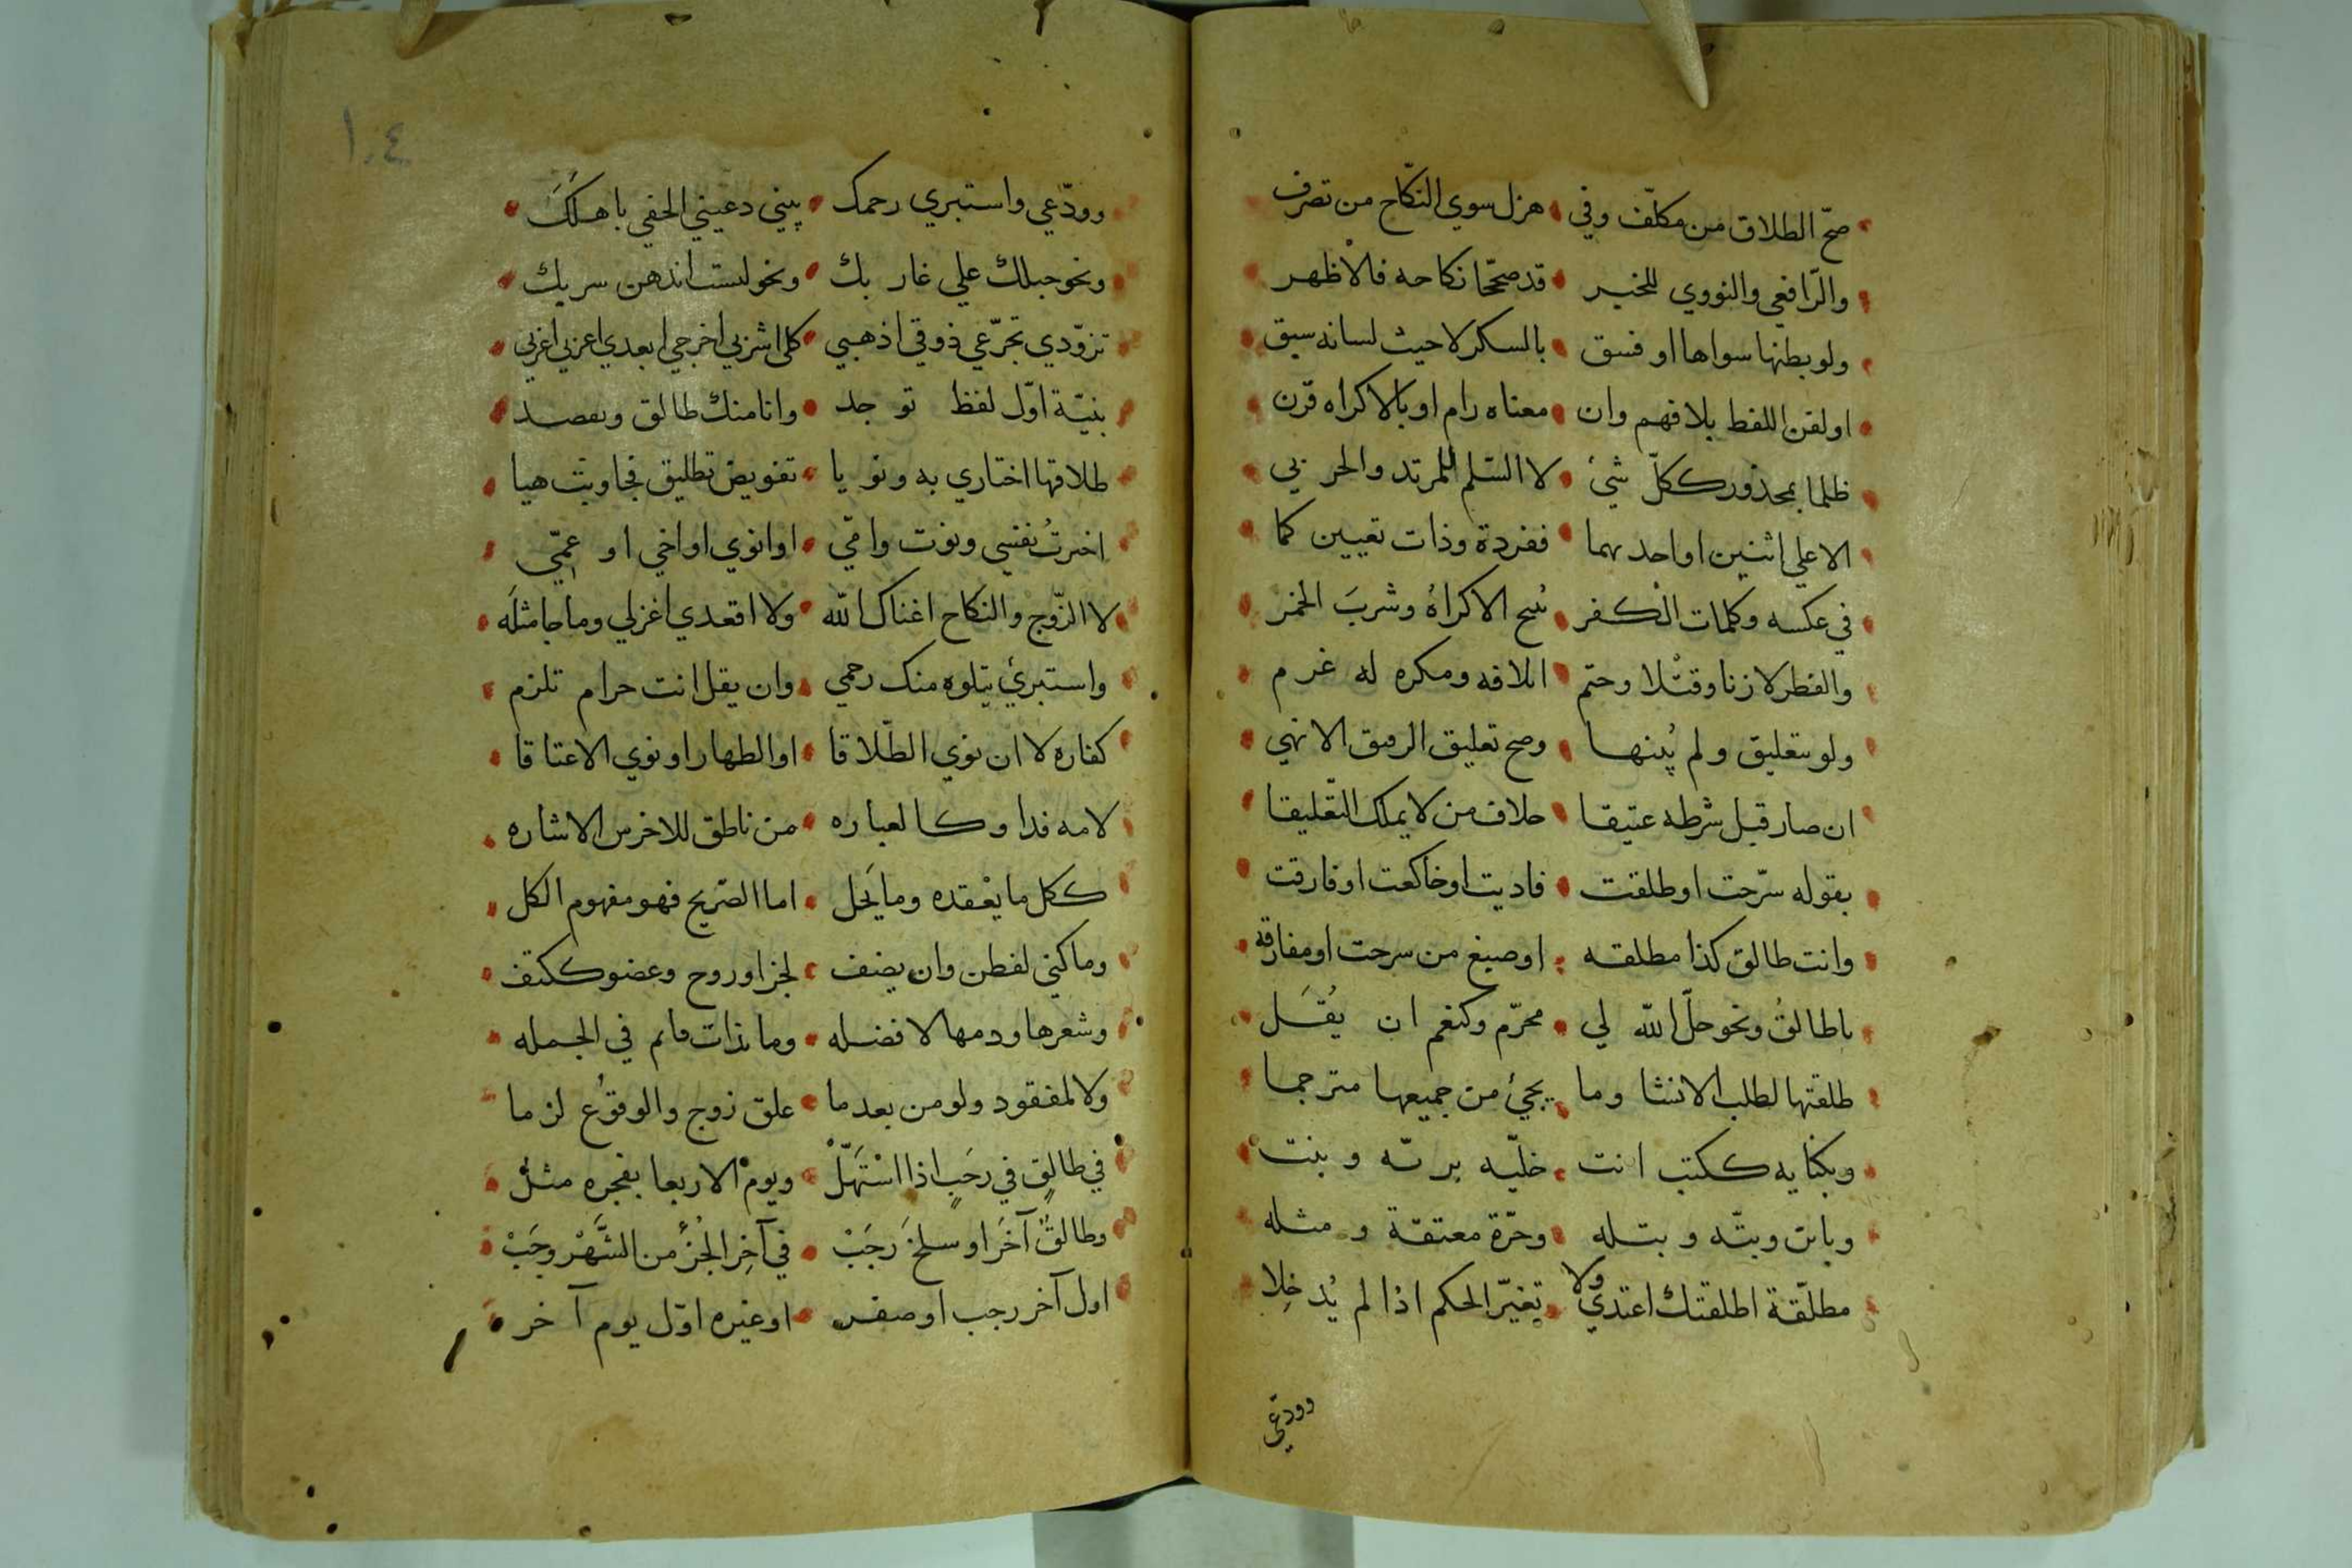 صحّ الطلاق من مكلّف وفي هزل سوي النّكاح من تصرف
والرّافعي والنووي للخبر قد صحّحا نكاحه فالأظهر
ولو بظنها سواها او فسق بالسكر لا حيث لسانه سبق
او لقن اللفظ بلا فهم وان معناه رام او بالاكراه قرن
ظلما بمحذور ككلّ شيئ لا السّلم للمرتد والحربي
الا علي اثنين او احد بهما ففردة وذات تعيين كما
في عكسه وكلمات الكفر نبح الاكراهُ وشربَ الخمر
والفطر لا زنا وقتْلا وحتم اتلافه ومكره له غرم
ولو بتعليق ولم يُبنها وصح تعليق الرقيق الانهي
ان صار قبل شرطه عتيقا خلاف من لا يملك التّعليقا
بقوله سرّحت او طلقت فاديت او خالعت او فارقت
وانت طالق كذا مطلقه او صيغ من سرحت او مفارقه
يا طالقُ ونحو حلّ الله لي محرّم وكنعم ان يُقَل
طلقتها لطلب الانشا وما يجيئ من جميعها مترجما
وبكنايه ككتب انت خليّه بريّه وبنت
وباين وبتّه وبتله وحرّة معتقة ومثله
مطلّقة اطلقتك اعتدّي ولا تغيّر الحكم اذا لم يُدخِلا
وودعي
١٠٤
وودّعي واستبري رحمك بيني دعيني الحقي باهلكَ
ونحو حبلك علي غاربك ونحو لست اندهن سربك
تزوّدي تجرّعي ذوقي اذهبي كلي اشربي اخرجي ابعدي اعزبي اغربي
بنيّة اوّل لفظ توجد وانا منك طالق ويقصد
طلاقها اختاري به ونويا تفويض تطليق فجاوبت هيا
اخترتُ نفسي ونوت وامّي او ابوي او اخي او عمّي
لا الزّوج والنكاح اغناك الله ولا اقعدي اغزلي وما جا مثلَه
واستبرئي يتلوه منك رحمي وان يقل انت حرام تلزم
كفاره لا ان نوي الطّلاقا او الظهار او نوي الاعتاقا
لامه فدا وكالعباره من ناطق للاخرس الاشاره
ككل ما يعْقده وما يَحل اما الصّريح فهو مفهوم الكل
وما كني لفطن وان يضف لجزا وروح وعضو ككتف
وشعرها ودمها لا فضله وما بذات مايم في الجمله
ولا لمفقود ولو من بعد ما علق زوج والوقوع لزما
في طالقٍ في رجَبٍ اذا اسْتهَلّْ ويومْ الاربعا بفجره مثلْ
وطالقٌ آخَرَ او سلخَ رجَبْ في آخِر الجُزْءِ من الشَّهْر وجَبْ
اول آخر رجب او صفر او غيره اوّل يوم آخر